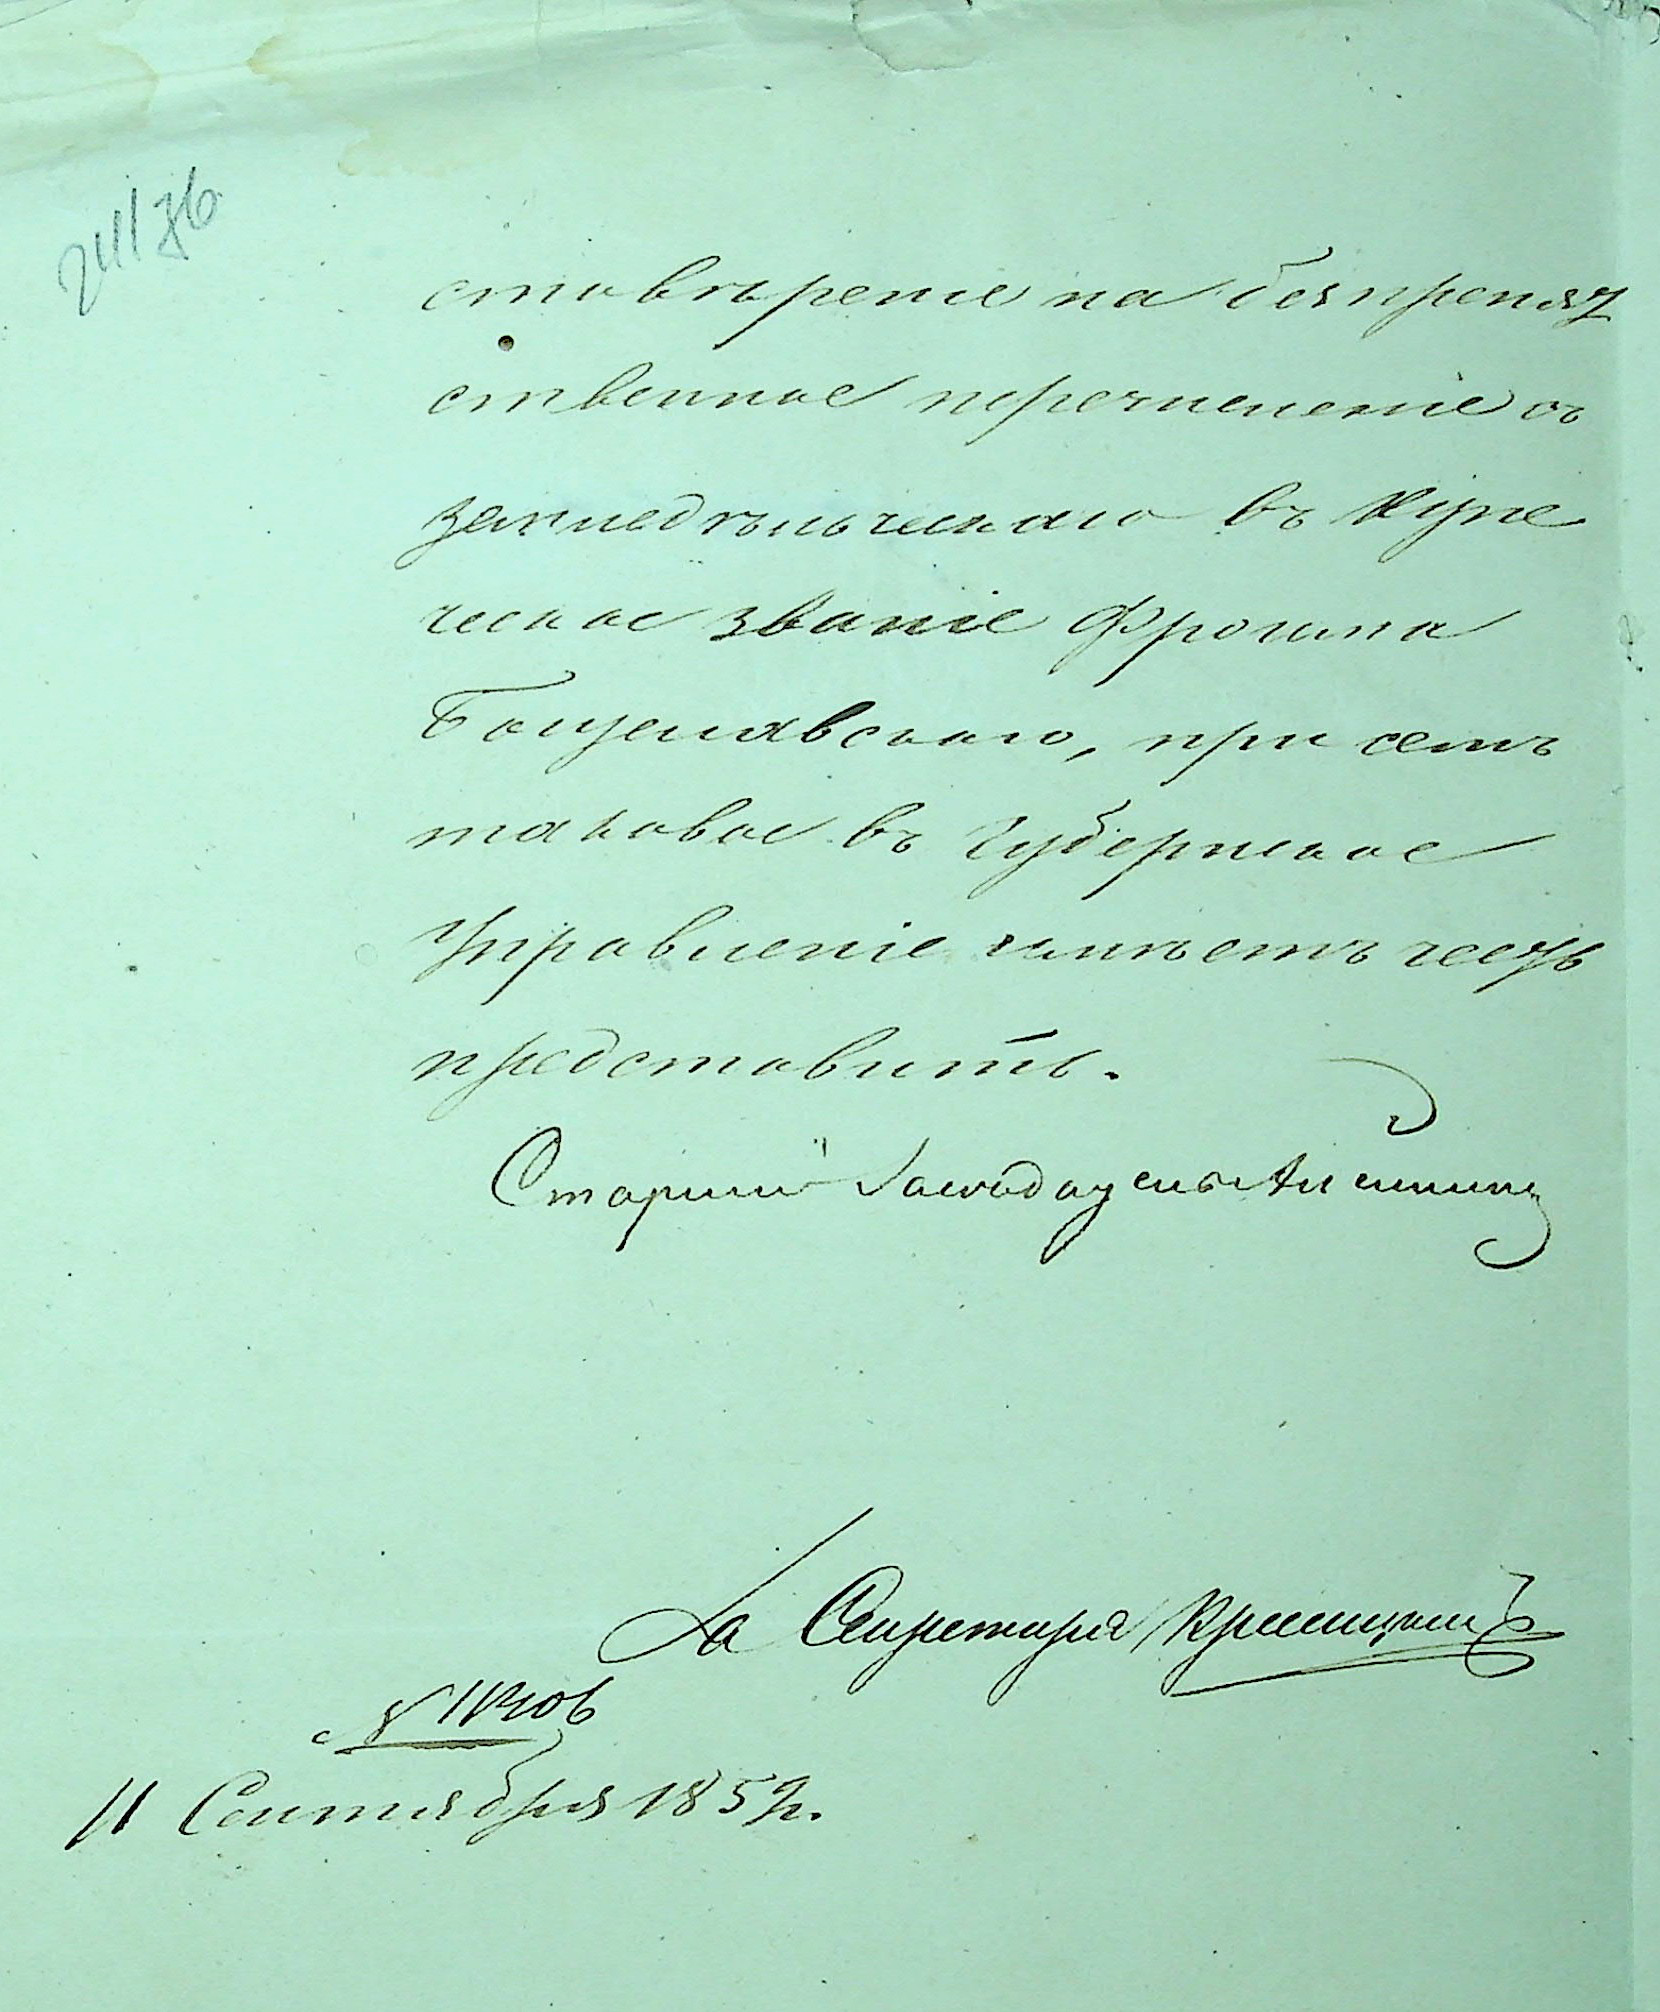 стовѣреніе на безпрепят
ственное перечисленіе съ
земледѣльческаго въ купе
ческое званіе Фроима
Бощелявскаго, при семъ
таковое въ Губернское
Управленіе имѣетъ честь
представить.
Старшій Засѣдатель
За Секретаря
№
11 Сентября 1859г.